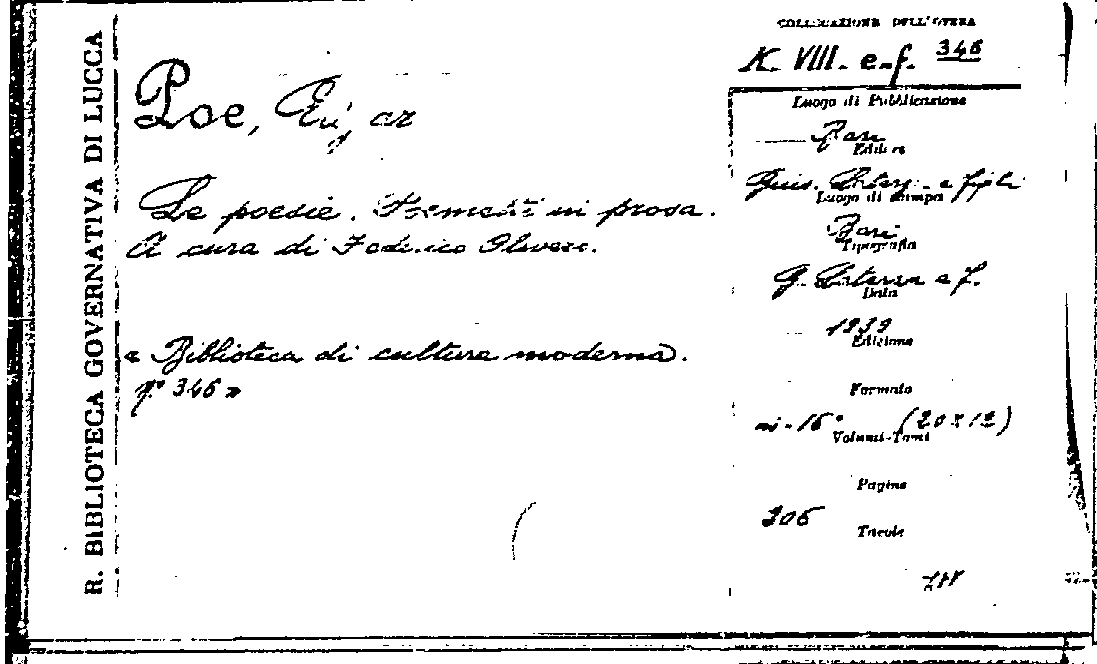 R. BIBLIOTECA GOVERNATIVA DI LUCCA
Poe, Edgar
Le poesie. Poemetti in prosa.
A cura di Federico Olivero.
« Biblioteca di cultura moderna.
n° 346 »
COLLOCAZIONE DELL'OPERA
K. VIII. e.f. 346
Luogo di Pubblicazione
Bari
Editore
Gius. Laterza e figli
Luogo di stampa
Bari
Tipografia
G. Laterza e f.
Data
1939
Edizione
Formato
in-16° (20x12)
Volumi-Tomi
Pagine
306
Tavole